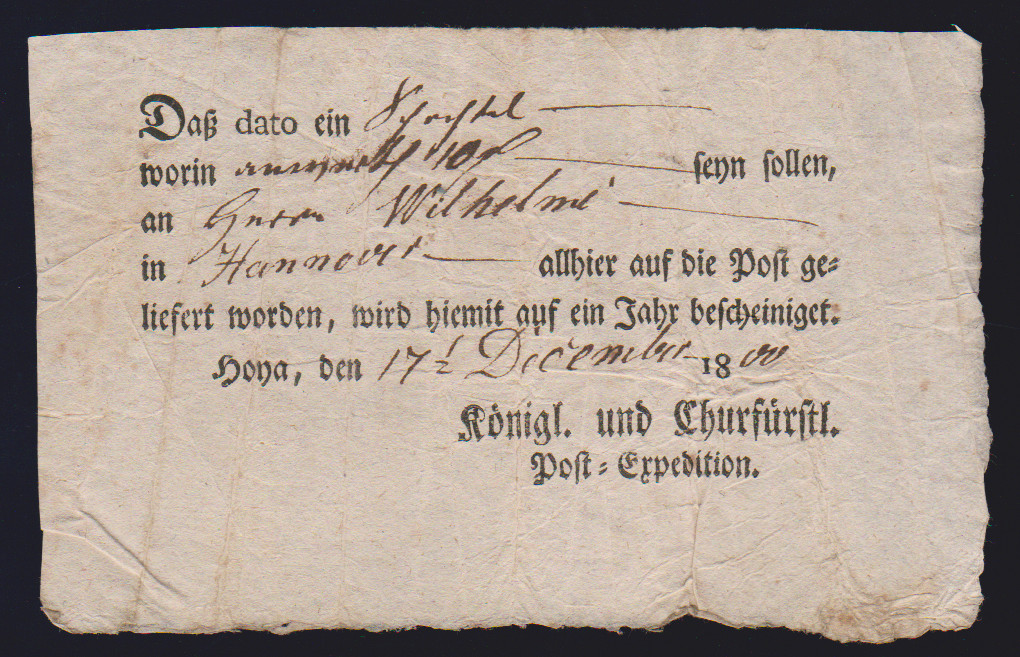 Daß dato ein Schachtel
worin 10 seyn sollen,
an Herrn Wilhelmi
in Hannover allhier auf die Post ge=
liefert worden, wird hiemit auf ein Jahr bescheiniget.
Hoya, den 17t December 1800
Königl. und Churfürstl.
Post=Expedition.